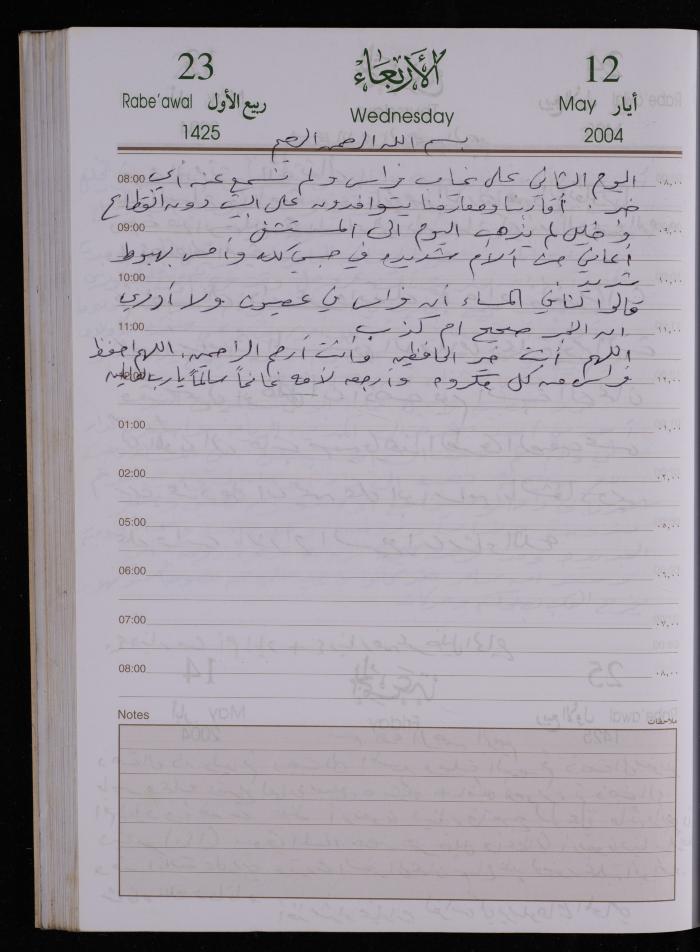 23 الأربعاء 12
Rabe'awal ربيع الأول Wednesday May أيار
1425 2004
بسم الله الرحمن الرحيم
08:00 اليوم الثاني على غياب فراس ولم نسمع عنه أي ٠٨,٠٠
خبر. أقاربنا ومعارفنا يتوافدون على البيت دون انقطاع
09:00 و خليل لم يذهب اليوم الى المستشفى
أعاني من آلام شديدة في جسمي كله وأحس بهبوط
10:00 شديد ١٠,٠٠
قالوا لنا في المساء أن فراس في عصيون ولا أدري
11:00 ان الخبر صحيح ام كذب ١١,٠٠
اللهم أنت خير الحافظين وأنت أرحم الراحمين، اللهم احفظ
فراس من كل مكروه وأرجعه لأمه غانماً سالماً يارب العالمين ١٢,٠٠
01:00 ٠١,٠٠
02:00 ٠٢,٠٠
05:00 ٠٥,٠٠
06:00 ٠٦,٠٠
07:00 ٠٧,٠٠
08:00 ٠٨,٠٠
Notes ملاحظات